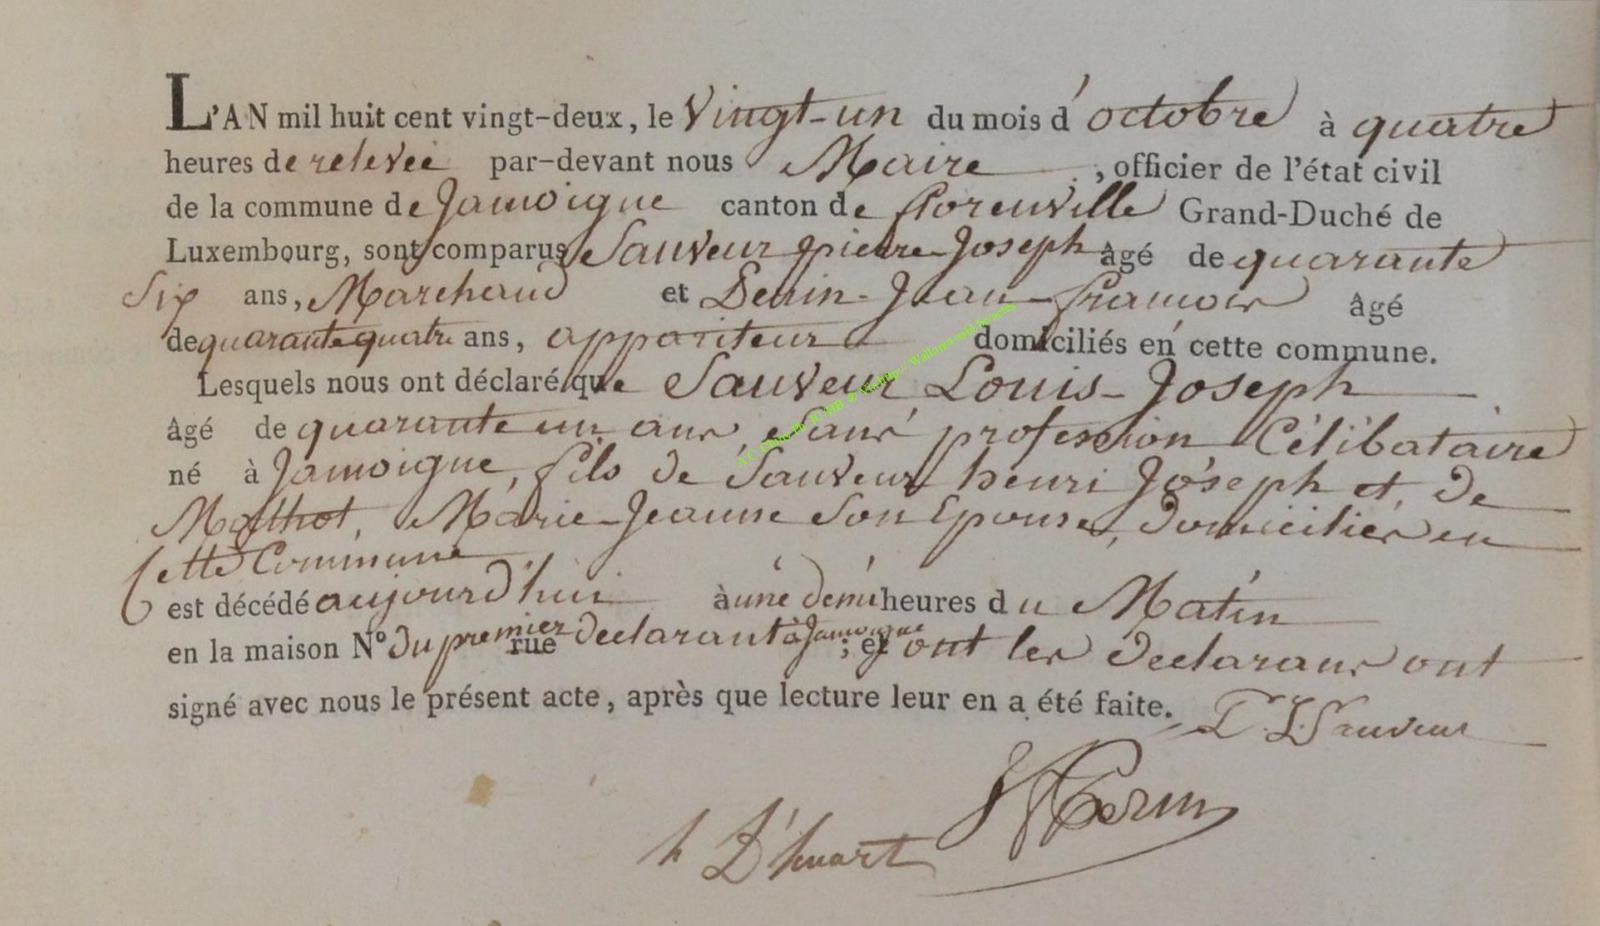 L'AN mil huit cent vingt-deux, le Vingt-un du mois d'octobre à quatre
heures de relevée par-devant nous Maire, officier de l'état civil
de la commune de Jamoigne canton de florenville Grand-Duché de
Luxembourg, sont comparus Sauveur pierre Joseph âgé de quarante
Six ans, Marchand et Jean françois âgé
de quarante quatre ans, appariteur domiciliés en cette commune.
Lesquels nous ont déclaré que Sauveur Louis-Joseph
âgé de quarante un ans, Sans profession Célibataire
né à Jamoigne, fils de Sauveur henri Joseph et de
Mathot, Marie-Jeanne Son Epouse, domiciliés en
Cette Commune
est décédé aujourd'hui à une demi heures du Matin
en la maison N° du premier rue declarant à Jamoigne; et ont les declarans ont
signé avec nous le présent acte, après que lecture leur en a été faite.
Sauveur
h D'huart